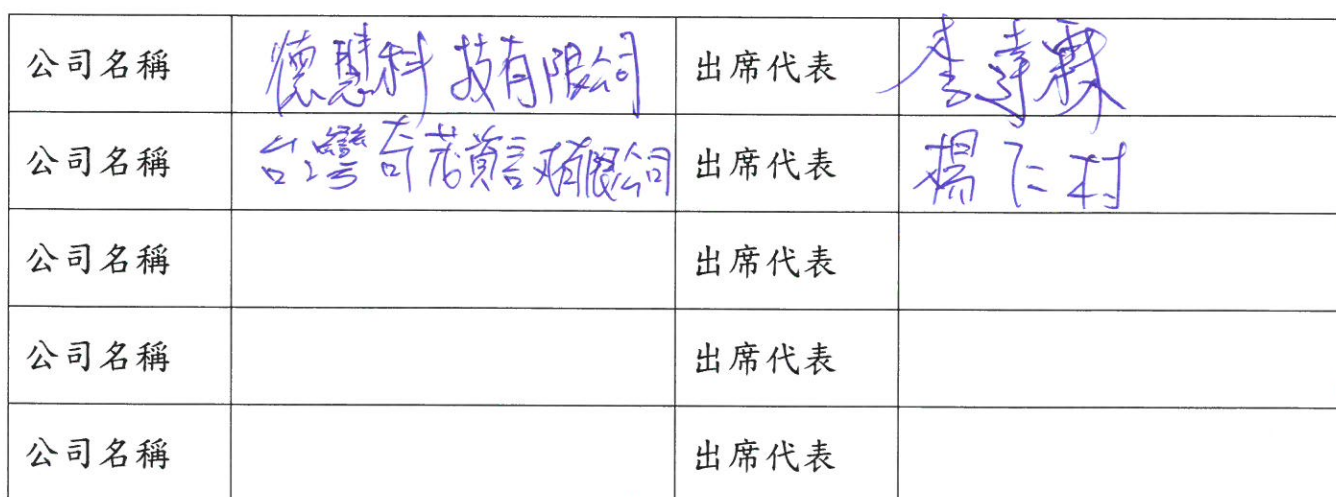 公司名稱 德慧科技有限公司 出席代表 李 霖
公司名稱 台灣奇若資訊有限公司 出席代表 楊仁村
公司名稱 出席代表
公司名稱 出席代表
公司名稱 出席代表